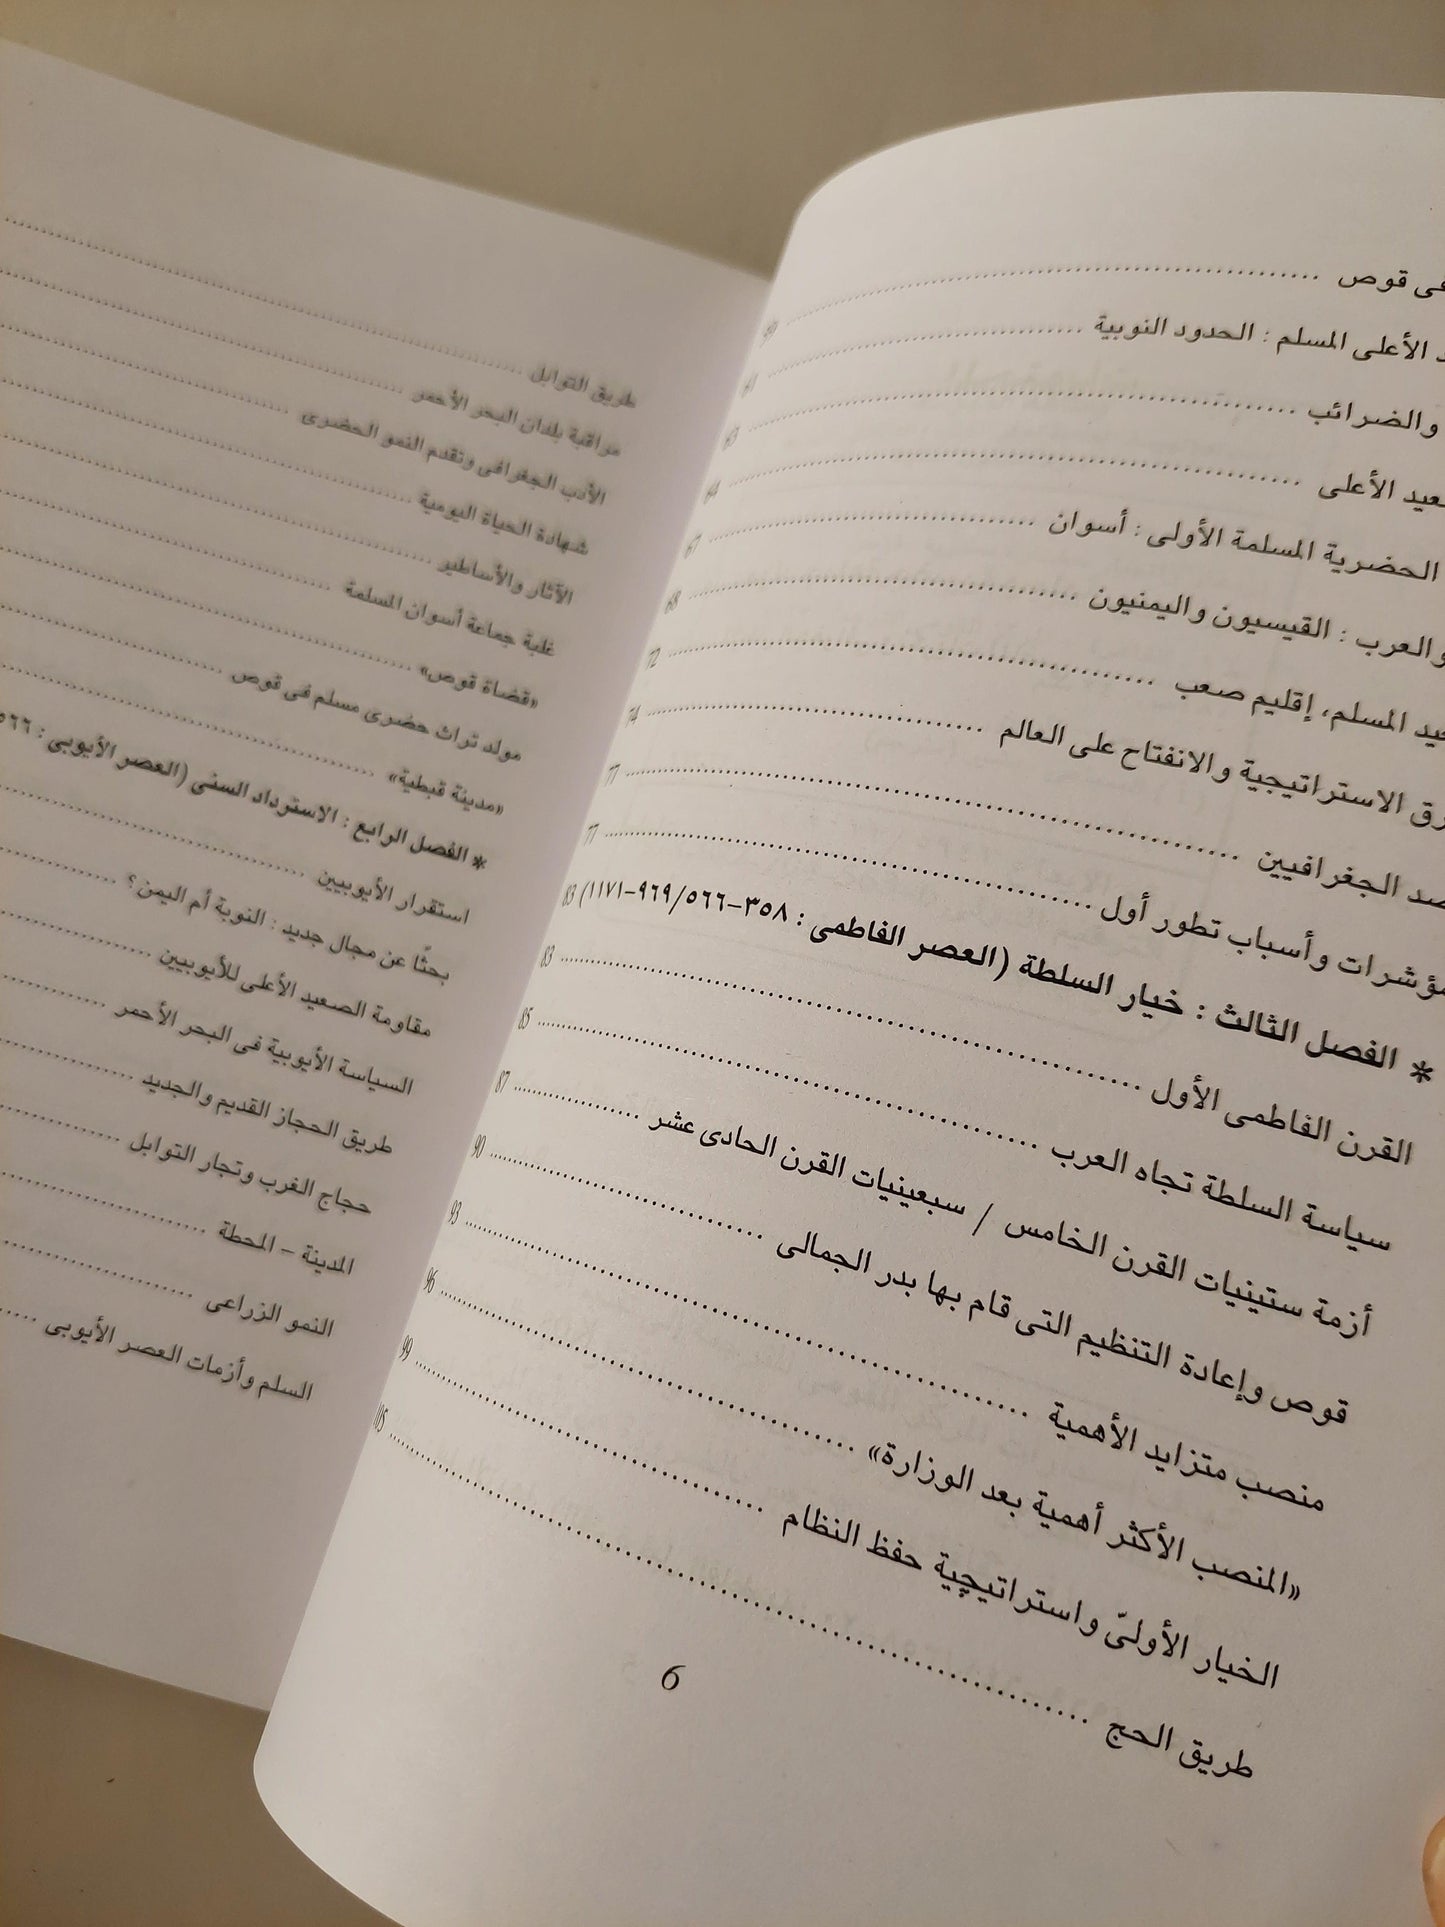 فى قوص 59
الأعلى المسلم : الحدود النوبية 61
والضرائب 63
الأعلى 64
الحضرية المسلمة الأولى : أسوان 67
والعرب : القيسيون واليمنيون 68
المسلم، إقليم صعب 72
الاستراتيجية والانفتاح على العالم 74
الجغرافيين 77
مؤشرات وأسباب تطور أول 77
* الفصل الثالث : خيار السلطة (العصر الفاطمى : ٣٥٨-٥٦٦/٩٦٩-١١٧١) 83
القرن الفاطمى الأول 83
سياسة السلطة تجاه العرب 85
أزمة ستينيات القرن الخامس / سبعينيات القرن الحادى عشر 87
قوص وإعادة التنظيم التى قام بها بدر الجمالى 90
منصب متزايد الأهمية 93
«المنصب الأكثر أهمية بعد الوزارة» 96
الخيار الأولىّ واستراتيچية حفظ النظام 99
طريق الحج 105
6
طريق التوابل
مراقبة بلدان البحر الأحمر
الأدب الجغرافى وتقدم النمو الحضرى
شهادة الحياة اليومية
الآثار والأساطير
غلبة جماعة أسوان المسلمة
«قضاة قوص»
مولد تراث حضرى مسلم فى قوص
«مدينة قبطية»
* الفصل الرابع : الاسترداد السنى (العصر الأيوبى : ٥٦٦
استقرار الأيوبيين
بحثًا عن مجال جديد : النوبة أم اليمن؟
مقاومة الصعيد الأعلى للأيوبيين
السياسة الأيوبية فى البحر الأحمر
طريق الحجاز القديم والجديد
حجاج الغرب وتجار التوابل
المدينة – المحطة
النمو الزراعى
السلم وأزمات العصر الأيوبى